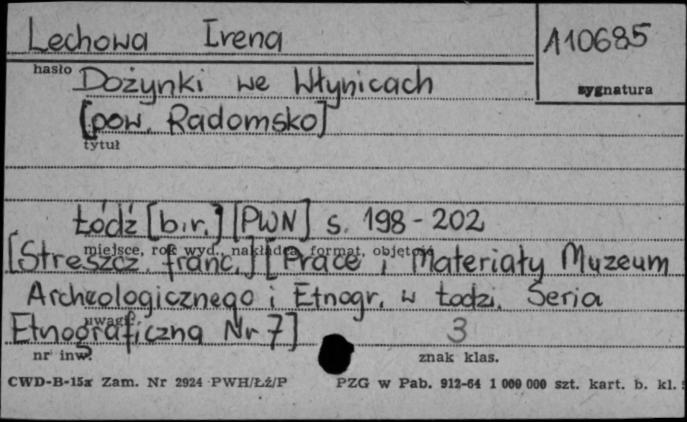 Lechowa Irena
A10685
hasło
sygnatura
Dożynki we Włynicach
[pow. Radomsko]
tytuł
Łódź [b.r.] [PWN] s. 198-202
miejsce, rok wyd., nakładca, format, objętość
[Streszcz. franc.] [Prace i Materiały Muzeum
Archeologicznego i Etnogr. w Łodzi. Seria
uwagi
Etnograficzna Nr 7]
3
nr inw.
znak klas.
CWD-B-15x Zam. Nr 2924 PWH/Łź/P
PZG w Pab. 912-64 1 000 000 szt. kart. b. kl.